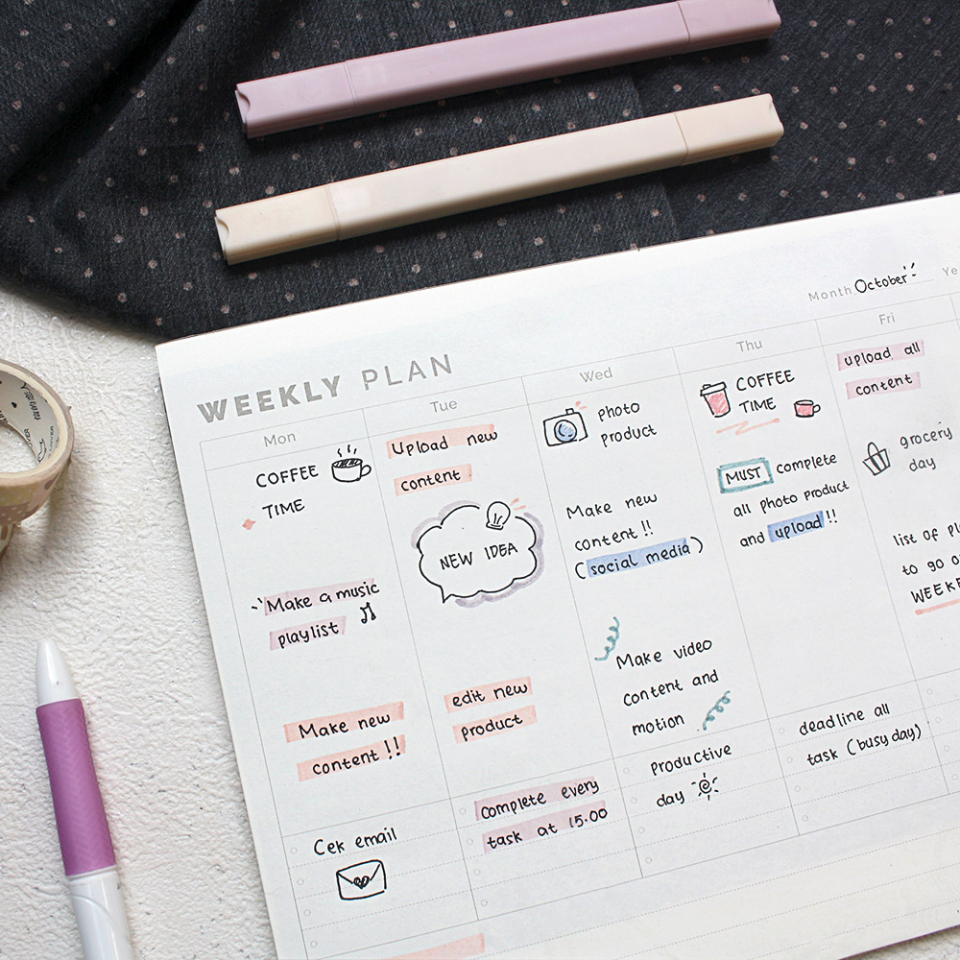 Month October
WEEKLY PLAN
Mon
COFFEE
TIME
Make a music
playlist
Make new
content !!
Cek email
Tue
Upload new
content
NEW IDEA
edit new
product
Complete every
task at 15.00
Wed
photo
product
Make new
content !!
(social media)
Make video
content and
motion
Productive
day
Thu
COFFEE
TIME
MUST complete
all photo product
and upload !!
deadline all
task (busy day)
Fri
upload all
content
grocery
day
list of
to go